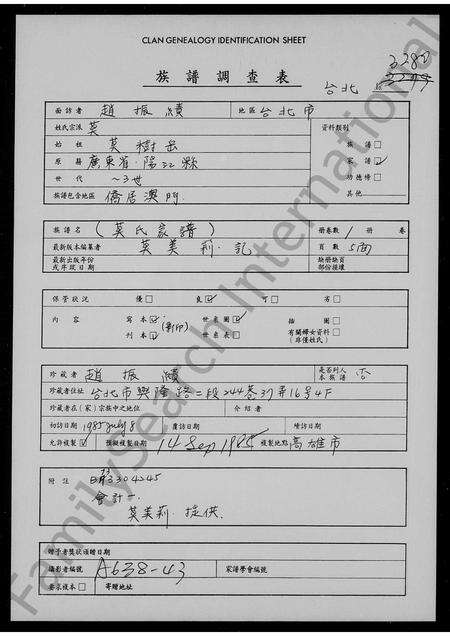 CLAN GENEALOGY IDENTIFICATION SHEET
族譜調查表
台北 3280
面訪者 趙振續 地區 台北市
姓氏宗派 莫 資料類別
始祖 莫樹岳 族譜□
原籍 廣東省·陽江縣 家譜☑
世代 ～3世 功德榜□
族譜包含地區 僑居澳門 其他
族譜名 (莫氏家譜) 冊卷數 1冊 卷
最新版本編纂者 莫美莉·記 頁數 5面
最新出版年份或序跋日期 缺冊缺頁部份損壞
保管狀況 優□ 良☑ 可□ 劣□
內容 寫本☑ (影印) 世系圖☑ 插圖□
刊本□ 世系表□ 有關婦女資料(非僅姓氏)□
珍藏者 趙振續 是否列入本族譜 否
珍藏者住址 台北市興隆路二段244巷37弄16号4F
珍藏者在(家)宗族中之地位 介紹者
初訪日期 1985 July 8 覆訪日期 續訪日期
允許複製☑ 擬複製日期 14 Sep 1985 複製地點 高雄市
附註 3304245
會計一
莫美莉 提供
贈予者獎狀頒贈日期
攝影者編號 A638-43 家譜學會編號
要求複本□ 寄贈地址
FamilySearch International